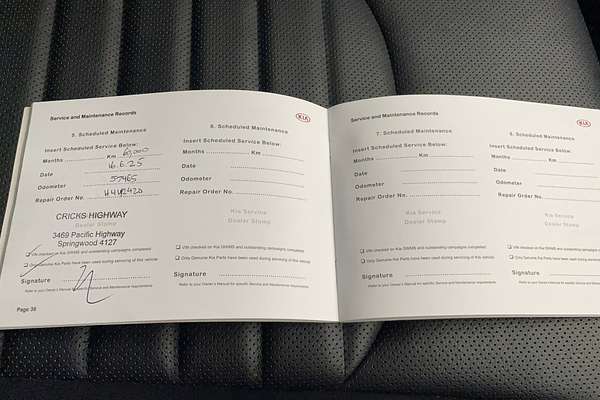 Service and Maintenance Records
5. Scheduled Maintenance
Insert Scheduled Service Below:
Months Km 60,000
Date 16.6.25
Odometer 57465
Repair Order No.
CRICKS HIGHWAY
Dealer Stamp
3469 Pacific Highway
Springwood 4127
VIN checked on Kia SWMS and outstanding campaigns completed
Only Genuine Kia Parts have been used during servicing of this vehicle
Signature
Refer to your Owner's Manual for specific Service and Maintenance requirements
Page 38
6. Scheduled Maintenance
KIA
Insert Scheduled Service Below:
Months Km
Date
Odometer
Repair Order No.
Kia Service
Dealer Stamp
VIN checked on Kia SWMS and outstanding campaigns completed
Only Genuine Kia Parts have been used during servicing of this vehicle
Signature
Refer to your Owner's Manual for specific Service and Maintenance requirements
Service and Maintenance Records
7. Scheduled Maintenance
Insert Scheduled Service Below:
Months Km
Date
Odometer
Repair Order No.
Kia Service
Dealer Stamp
VIN checked on Kia SWMS and outstanding campaigns completed
Only Genuine Kia Parts have been used during servicing of this vehicle
Signature
Refer to your Owner's Manual for specific Service and Maintenance requirements
KIA
8. Scheduled Maintenance
Insert Scheduled Service Below:
Months Km
Date
Odometer
Repair Order No.
Kia Service
Dealer Stamp
VIN checked on Kia SWMS and outstanding campaigns
Only Genuine Kia Parts have been used during servicing of
Signature
Refer to your Owner's Manual for specific Service and Maintenance